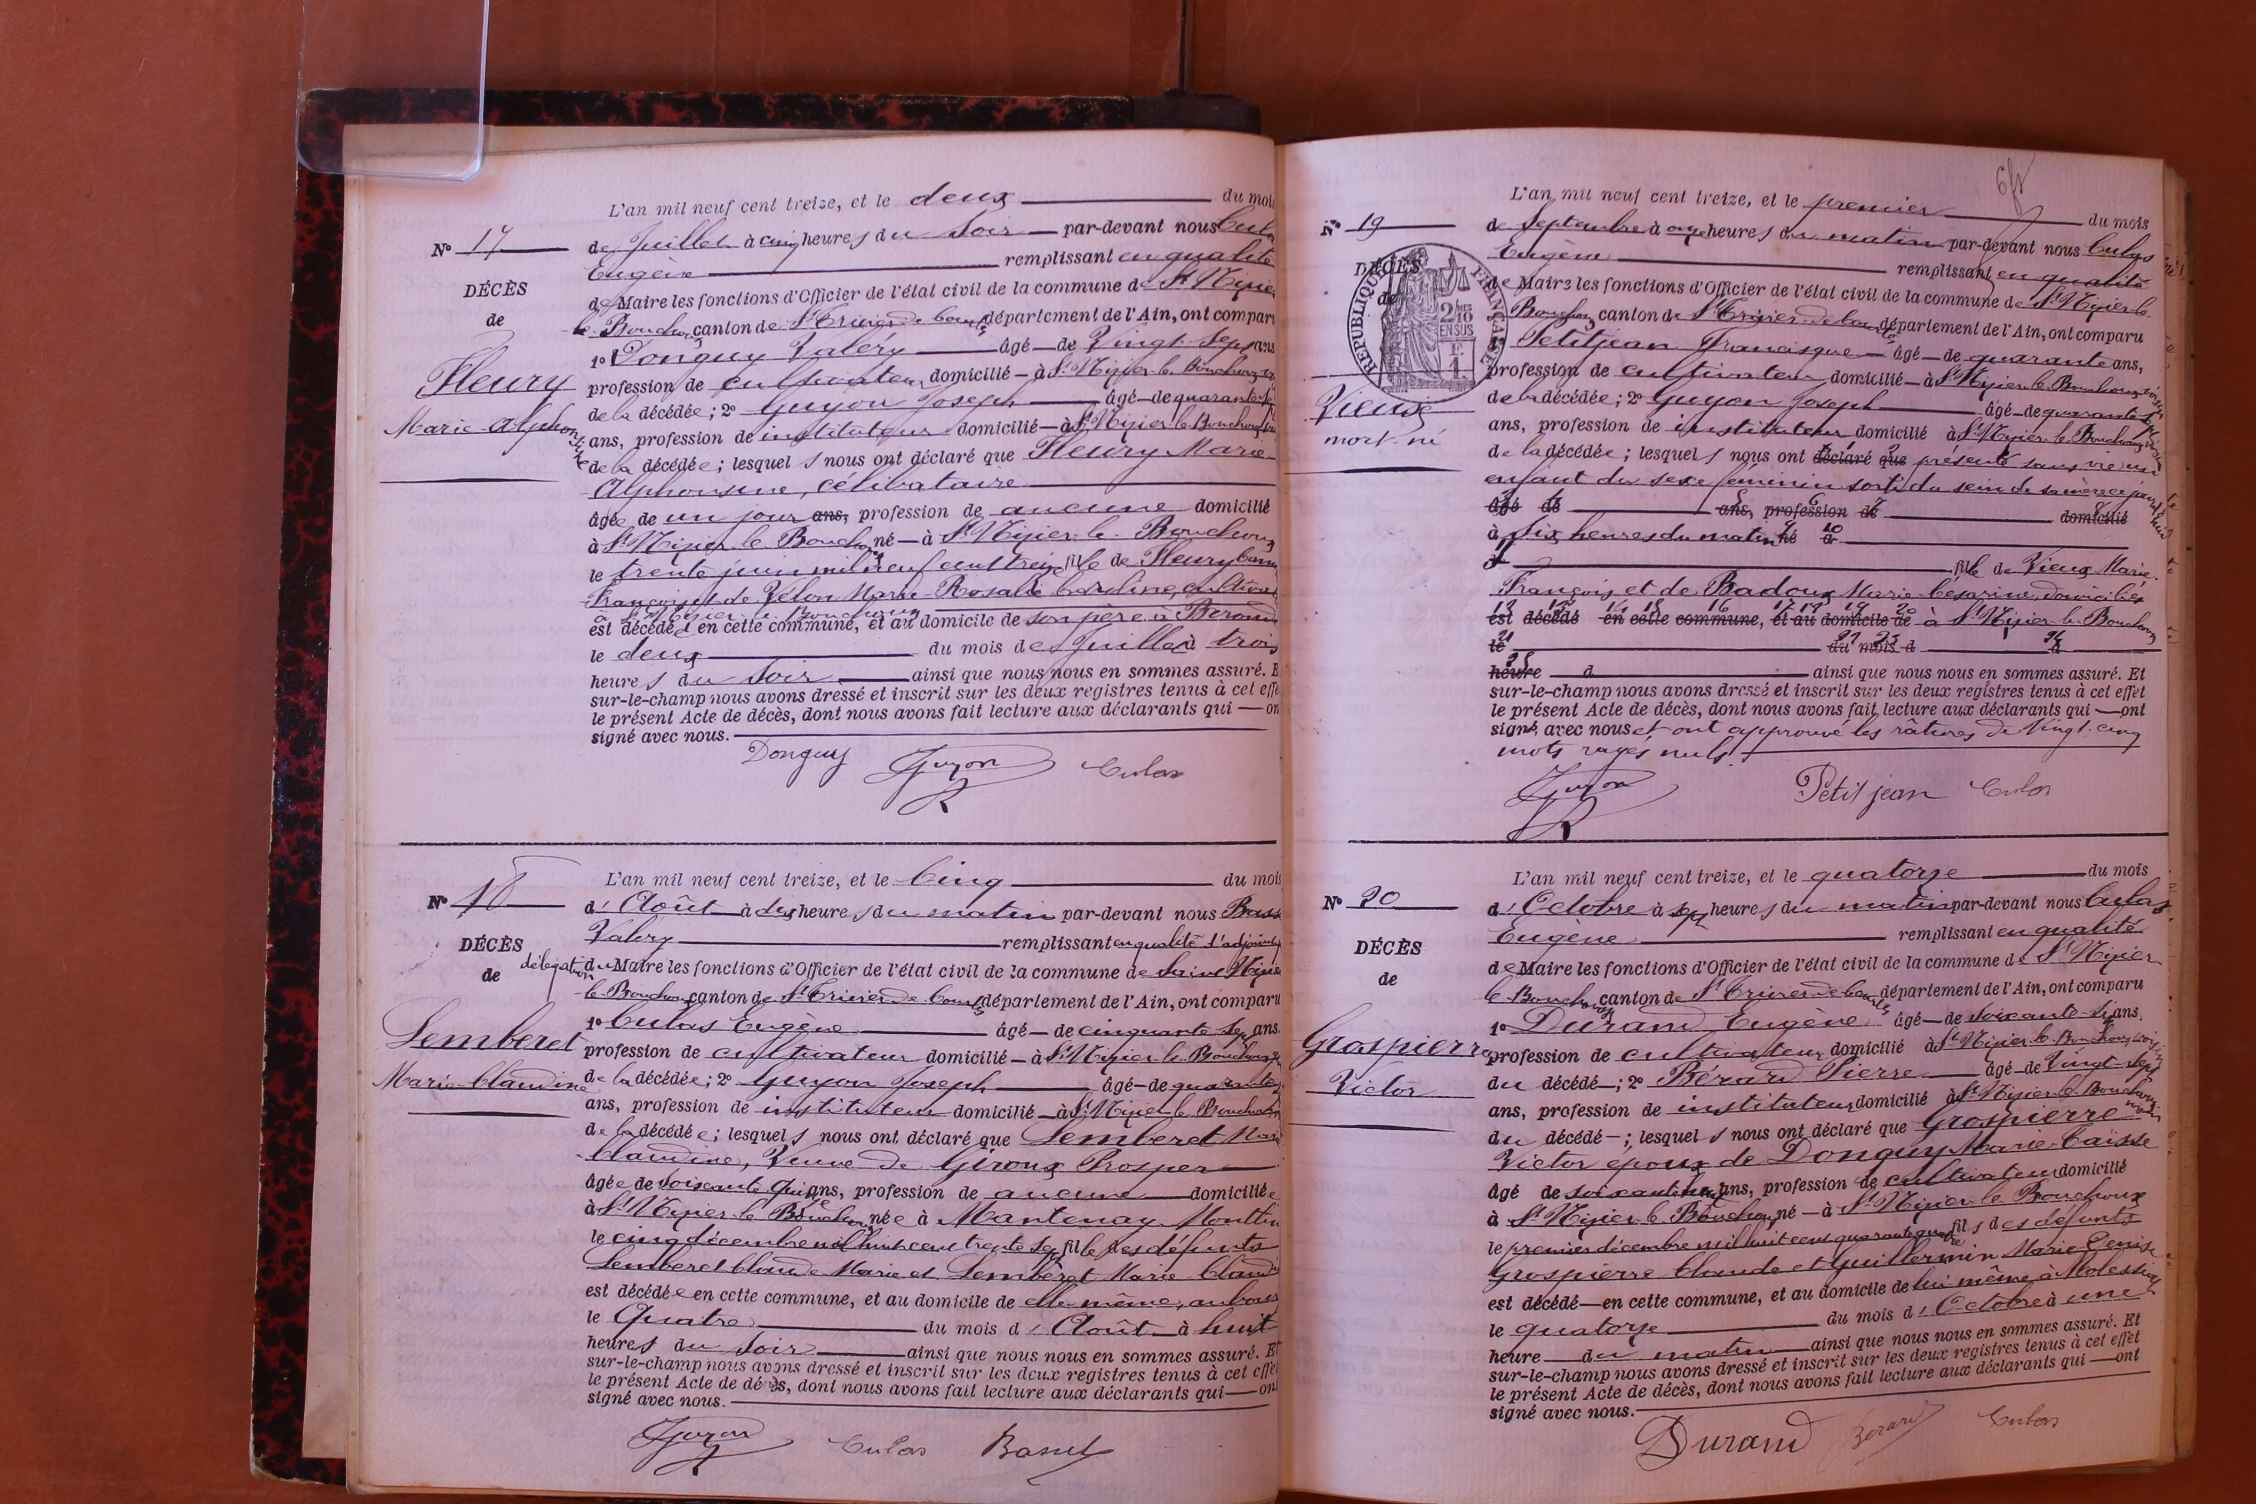 L'an mil neuf cent treize, et le deux du mois
N° 17
de Juillet à cinq heures du soir par-devant nous Culas
Eugène remplissant en qualité
DÉCÈS
de Maire les fonctions d'Officier de l'état civil de la commune de St Nizier
de
le Bouchoux canton de St Trivier de Courtes département de l'Ain, ont comparu
1° Donguy Valéry âgé de Vingt-sept ans
Fleury
profession de cultivateur domicilié à St Nizier le Bouchoux
Marie Alphonsine
de la décédée; 2° Guyon Joseph âgé de quarante
ans, profession de instituteur domicilié à St Nizier le Bouchoux
de la décédée; lesquels nous ont déclaré que Fleury Marie
Alphonsine, célibataire
âgée de un jour ans, profession de aucune domicilié
à St Nizier le Bouchoux né à St Nizier le Bouchoux
le trente juin mil neuf cent treize fille de Fleury
François et de Vélon Marie Rosalie Caroline,
à St Nizier le Bouchoux
est décédée en cette commune, et au domicile de son père à
le deux du mois de Juillet à trois
heures du soir ainsi que nous nous en sommes assuré. E
sur-le-champ nous avons dressé et inscrit sur les deux registres tenus à cet effe
le présent Acte de décès, dont nous avons fait lecture aux déclarants qui on
signé avec nous.
Donguy Guyon Culas
L'an mil neuf cent treize, et le Cinq du mois
N° 18
d'Août à dix heures du matin par-devant nous
Valéry remplissant en qualité d'adjoint
DÉCÈS
de
délégation du Maire les fonctions d'Officier de l'état civil de la commune de Saint Nizier
le Bouchoux canton de St Trivier de Courtes département de l'Ain, ont comparu
1° Culas Eugène âgé de cinquante-sept ans
Lemberet
profession de cultivateur domicilié à St Nizier le Bouchoux
Marie Claudine
de la décédée; 2° Guyon Joseph âgé de quarante
ans, profession de instituteur domicilié à St Nizier le Bouchoux
de la décédée; lesquels nous ont déclaré que Lemberet Marie
Claudine, Veuve de Giroux Prosper
âgée de soixante quinze ans, profession de aucune domiciliée
à St Nizier le Bouchoux née à Mantenay Montlin
le cinq décembre mil huit cent trente sept fille des défunts
Lemberet Claude Marie et Lemberet Marie Claudine
est décédée en cette commune, et au domicile de elle même, au bourg
le Quatre du mois d'Août à huit
heures du soir ainsi que nous nous en sommes assuré. Et
sur-le-champ nous avons dressé et inscrit sur les deux registres tenus à cet effet
le présent Acte de décès, dont nous avons fait lecture aux déclarants qui ont
signé avec nous.
Guyon Culas Basset
L'an mil neuf cent treize, et le premier du mois
N° 19
de Septembre à onze heures du matin par-devant nous Culas
Eugène remplissant en qualité
DÉCÈS
de Maire les fonctions d'Officier de l'état civil de la commune de St Nizier le
de
RÉPUBLIQUE FRANÇAISE
Bouchoux canton de St Trivier de Courtes département de l'Ain, ont comparu
Petitjean Francisque âgé de quarante ans,
profession de cultivateur domicilié à St Nizier le Bouchoux voisin
Vieux
de la décédée; 2° Guyon Joseph âgé de quarante sept
mort-né
ans, profession de instituteur domicilié à St Nizier le Bouchoux voisin
de la décédée; lesquels nous ont déclaré que présenté sans vie un
enfant du sexe féminin sorti du sein de sa mère cejourd'hui
âgé de ans, profession de domicilié
à six heures du matin né à
d fille de Vieux Marie
François et de Badoux Marie Césarine, domiciliés
est décédé en cette commune, et au domicile de à St Nizier le Bouchoux
le du mois d à
heure d ainsi que nous nous en sommes assuré. Et
sur-le-champ nous avons dressé et inscrit sur les deux registres tenus à cet effet
le présent Acte de décès, dont nous avons fait lecture aux déclarants qui ont
signé, avec nous et ont approuvé les râtures de Vingt-cinq
mots rayés nuls.
Guyon Petit jean Culas
L'an mil neuf cent treize, et le quatorze du mois
N° 20
d'Octobre à sept heures du matin par-devant nous Culas
Eugène remplissant en qualité
DÉCÈS
de Maire les fonctions d'Officier de l'état civil de la commune de St Nizier
de
le Bouchoux canton de St Trivier de Courtes département de l'Ain, ont comparu
1° Durand Eugène âgé de soixante-six ans,
Grospierre
profession de cultivateur domicilié à St Nizier le Bouchoux voisin
Victor
du décédé; 2° Bérard Pierre âgé de Vingt-sept
ans, profession de instituteur domicilié à St Nizier le Bouchoux voisin
du décédé; lesquels nous ont déclaré que Grospierre
Victor époux de Donguy Marie-Caïsse
âgé de soixante huit ans, profession de cultivateur domicilié
à St Nizier le Bouchoux né à St Nizier le Bouchoux
le premier décembre mil huit cent quarante quatre fils des défunts
Grospierre Claude et Guillermin Marie Denise
est décédé en cette commune, et au domicile de lui même à
le quatorze du mois d'Octobre à une
heure du matin ainsi que nous nous en sommes assuré. Et
sur-le-champ nous avons dressé et inscrit sur les deux registres tenus à cet effet
le présent Acte de décès, dont nous avons fait lecture aux déclarants qui ont
signé avec nous.
Durand Berard Culas